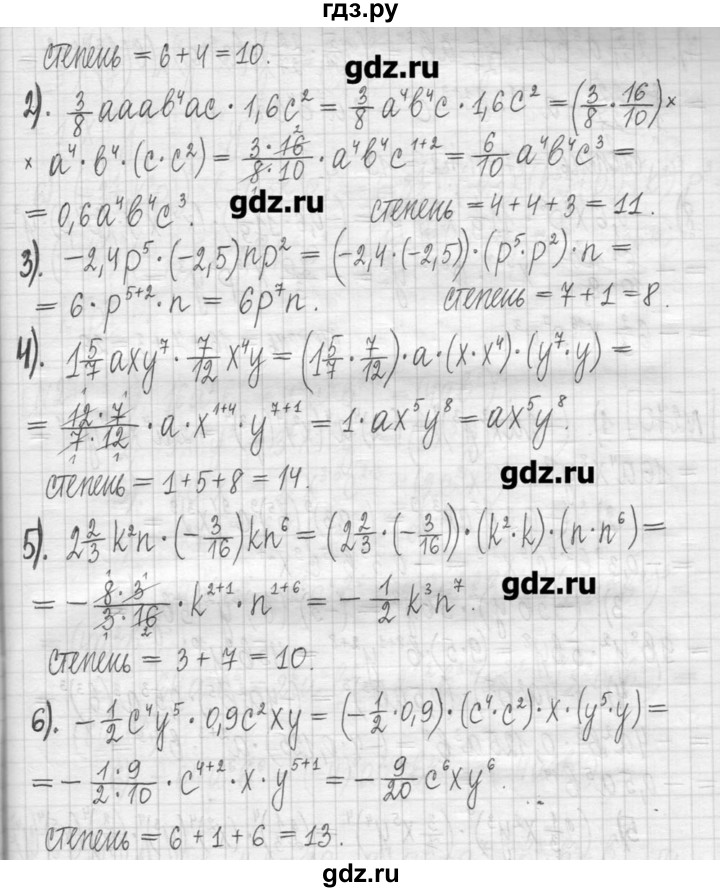 гдз.ру
степень = 6 + 4 = 10.
gdz.ru
2). 3/8 aaaв⁴ac · 1,6c² = 3/8 a⁴в⁴c · 1,6c² = (3/8 · 16/10) ×
× a⁴ · в⁴ · (c · c²) = 3 · 16/8 · 10 · a⁴в⁴c¹⁺² = 6/10 a⁴в⁴c³ =
= 0,6a⁴в⁴c³. степень = 4 + 4 + 3 = 11.
gdz.ru
3). -2,4p⁵ · (-2,5)np² = (-2,4 · (-2,5)) · (p⁵ · p²) · n =
= 6 · p⁵⁺² · n = 6p⁷n. степень = 7 + 1 = 8.
4). 1 5/7 axy⁷ · 7/12 x⁴y = (1 5/7 · 7/12) · a · (x · x⁴) · (y⁷ · y) =
= 12 · 7/7 · 12 · a · x¹⁺⁴ · y⁷⁺¹ = 1 · ax⁵y⁸ = ax⁵y⁸.
степень = 1 + 5 + 8 = 14.
gdz.ru
5). 2 2/3 k²n · (-3/16)kn⁶ = (2 2/3 · (-3/16)) · (k² · k) · (n · n⁶) =
= - 8 · 3/3 · 16 · k²⁺¹ · n¹⁺⁶ = - 1/2 k³n⁷.
gdz.ru
степень = 3 + 7 = 10.
6). - 1/2 c⁴y⁵ · 0,9c²xy = (- 1/2 · 0,9) · (c⁴ · c²) · x · (y⁵ · y) =
= - 1 · 9/2 · 10 · c⁴⁺² · x · y⁵⁺¹ = - 9/20 c⁶xy⁶.
степень = 6 + 1 + 6 = 13.
gdz.ru